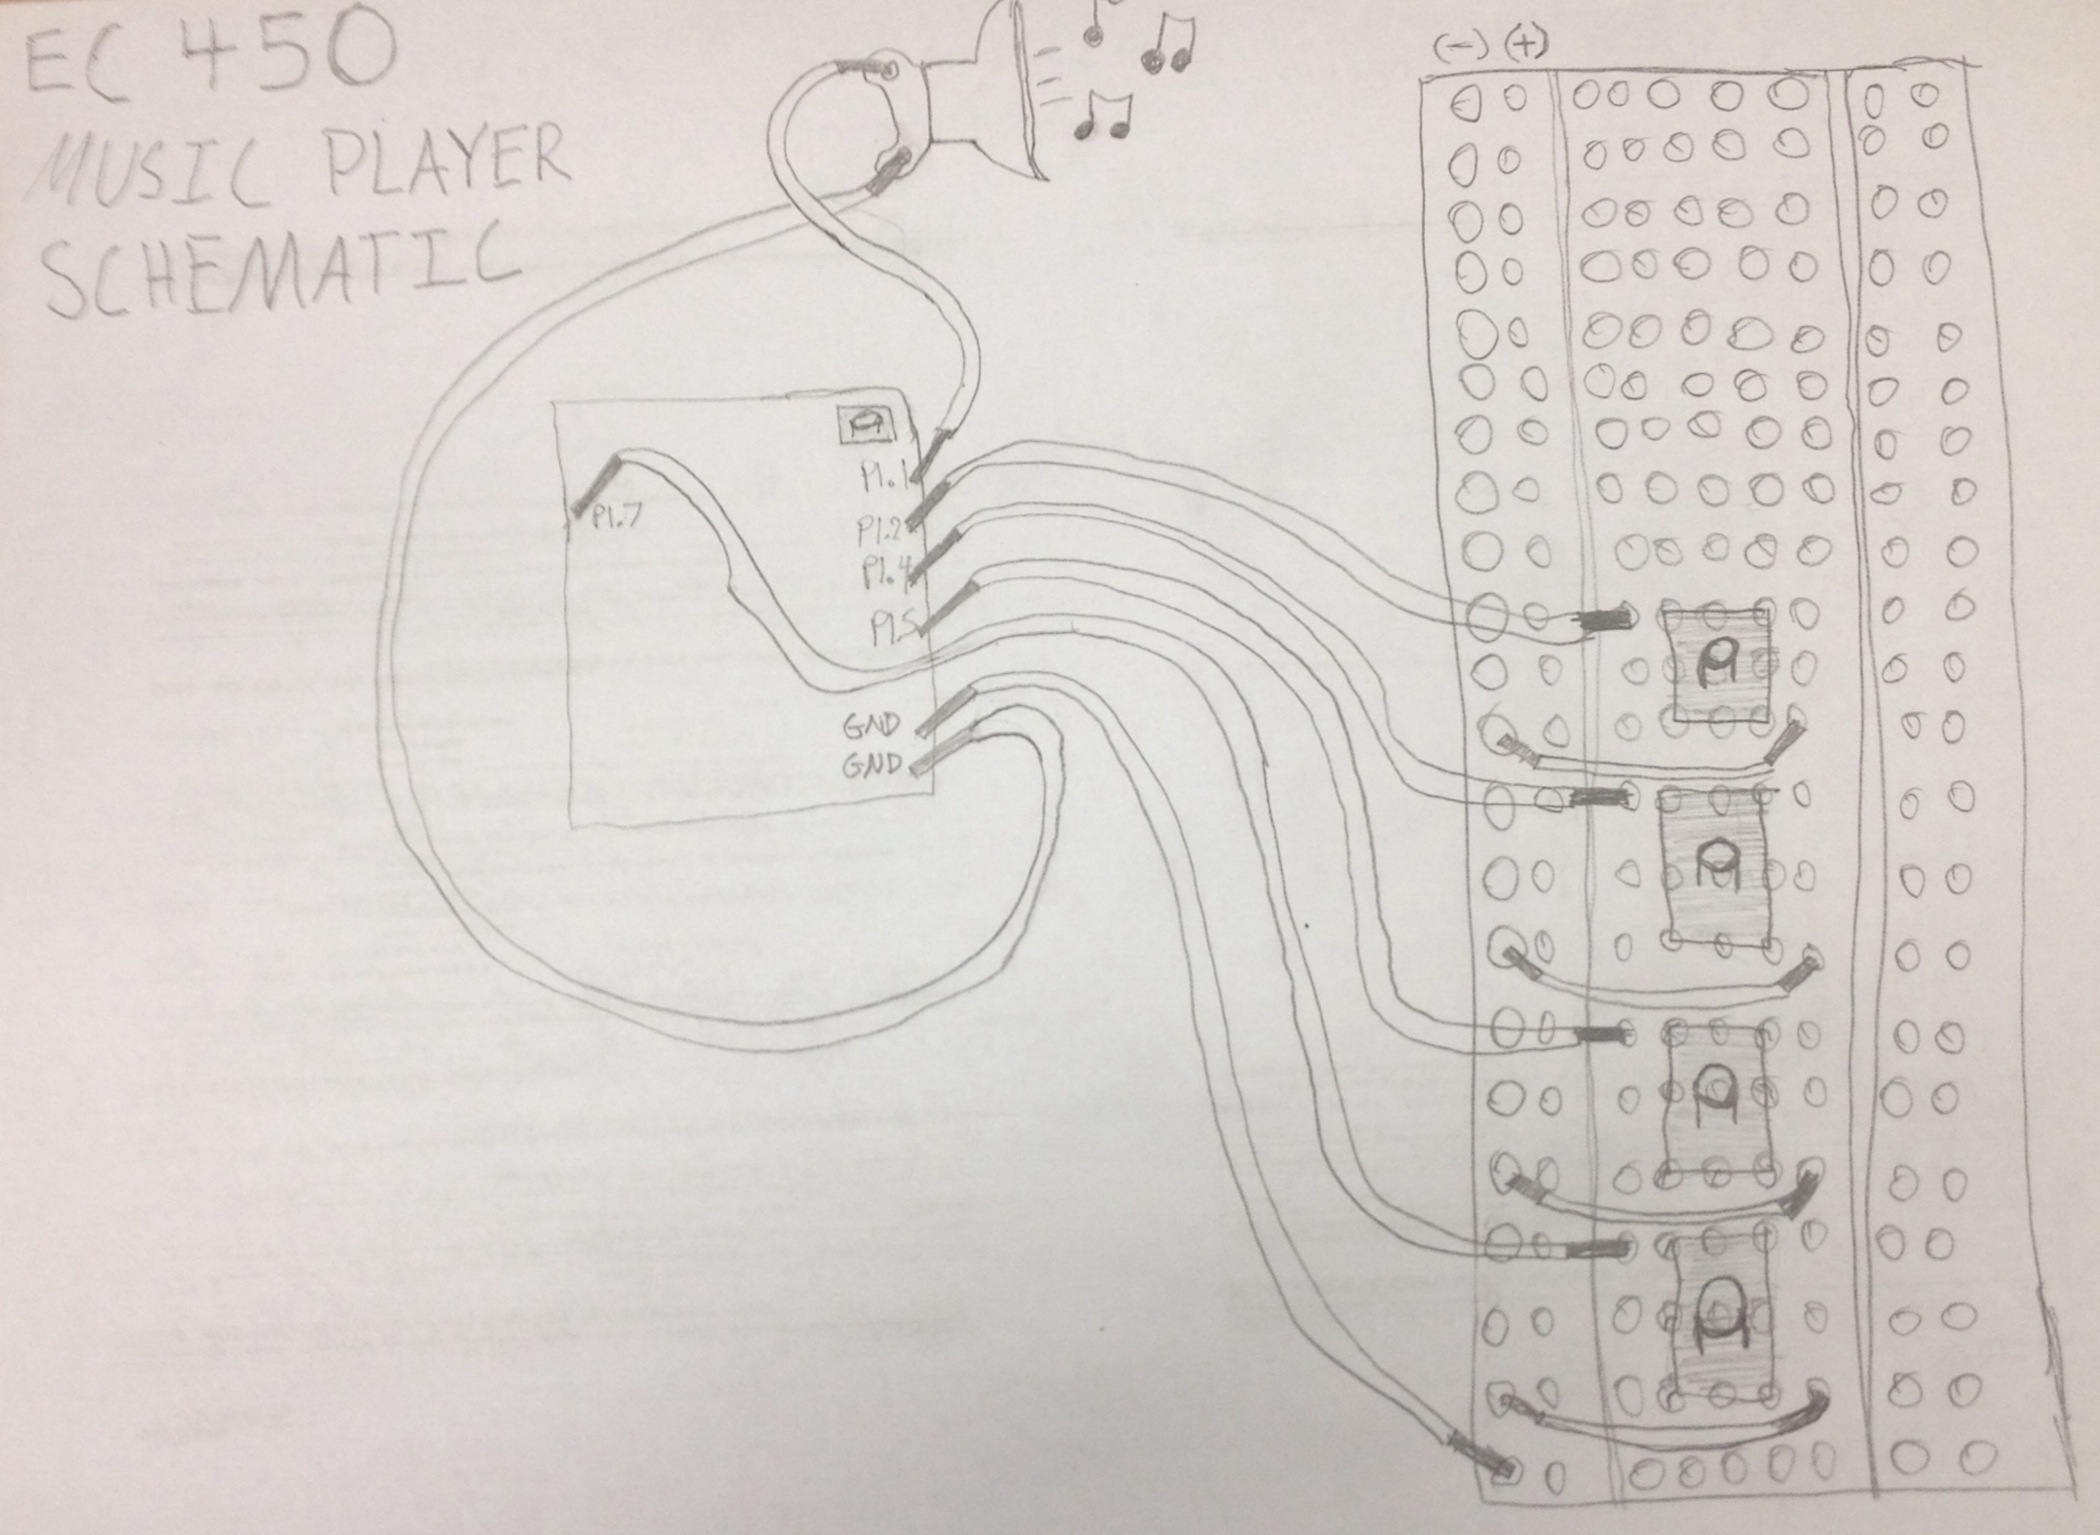 EC 450
MUSIC PLAYER
SCHEMATIC
(-) (+)
P1.1
P1.7
P1.2
P1.4
P1.5
GND
GND